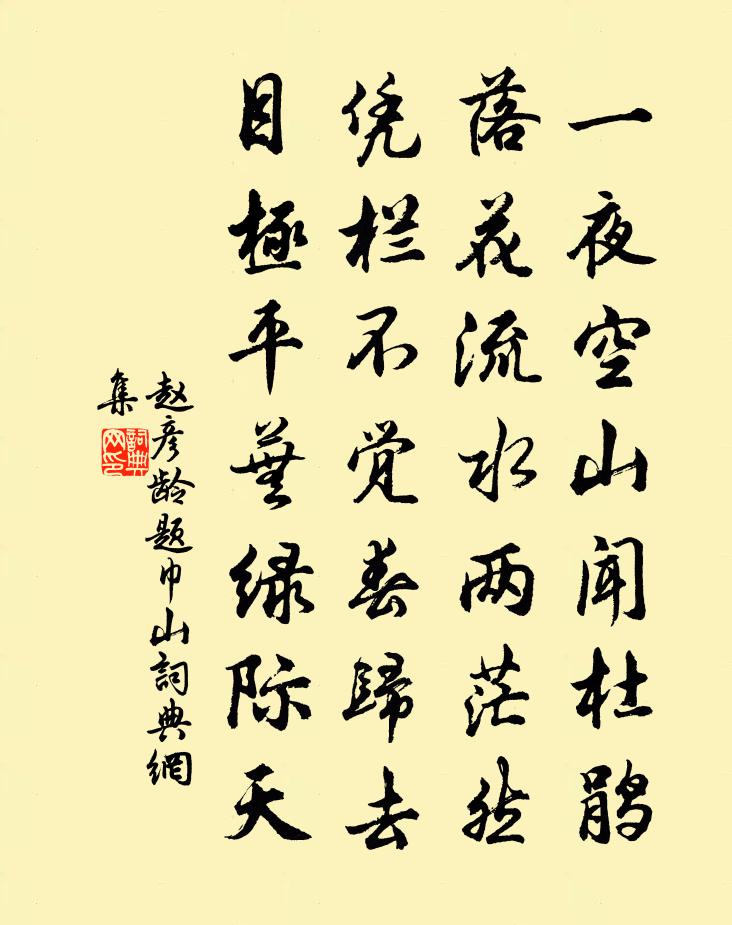 一夜空山闻杜鹃
落花流水两茫然
凭栏不觉春歸去
目極平蕪绿际天
赵彦龄题巾山詞典網
集
詞典网印